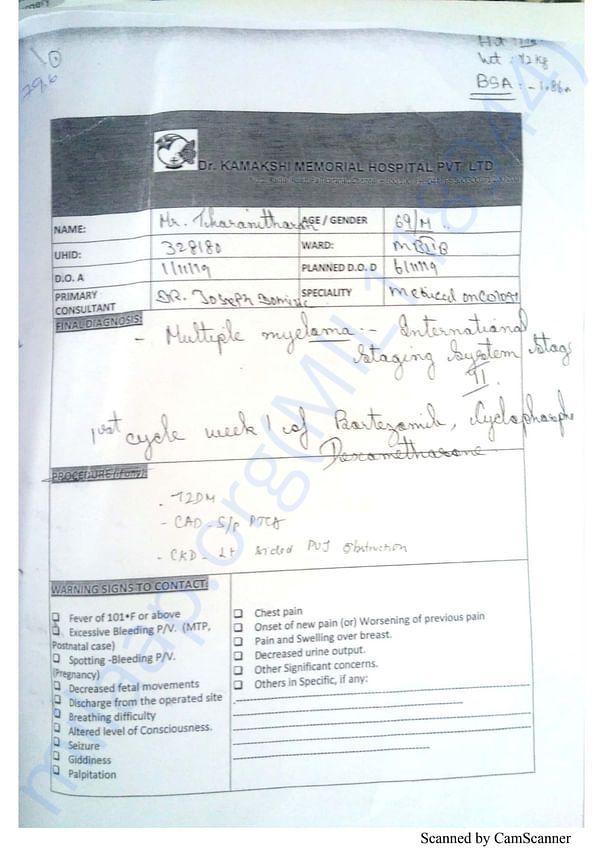 79.6
Wt : 72 Kg
BSA : - 1.86
Dr. KAMAKSHI MEMORIAL HOSPITAL PVT. LTD
NAME: Mr. Tharanitharan AGE / GENDER 69/M
UHID: 328180 WARD:
D.O. A 1/11/19 PLANNED D.O. D 6/11/19
PRIMARY CONSULTANT DR. Joseph Dominic SPECIALITY Medical oncology
FINAL DIAGNOSIS:
- Multiple myeloma :- International
Staging System Stag
II
1st cycle week 1 of Bortezomib, Cyclophosph
Dexamethasone.
PROCEDURE (if any):
- T2DM
- CAD - S/p PTCA
- CKD - Lt sided PUJ Obstruction
WARNING SIGNS TO CONTACT:
Fever of 101•F or above
Excessive Bleeding P/V. (MTP,
Postnatal case)
Spotting -Bleeding P/V.
(Pregnancy)
Decreased fetal movements
Discharge from the operated site
Breathing difficulty
Altered level of Consciousness.
Seizure
Giddiness
Palpitation
Chest pain
Onset of new pain (or) Worsening of previous pain
Pain and Swelling over breast.
Decreased urine output.
Other Significant concerns.
Others in Specific, if any:
Scanned by CamScanner